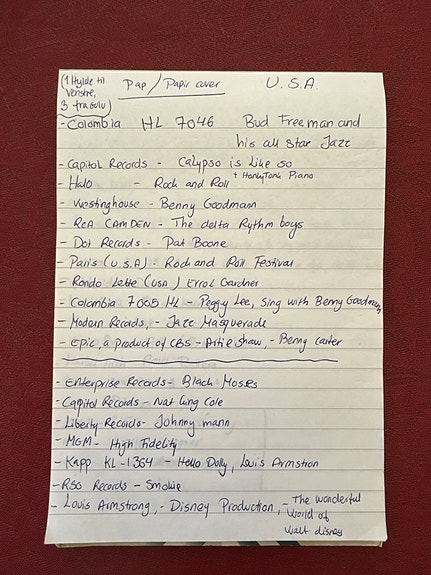 (1 Hylde til
venstre,
3 fra gulv)
Pap/Papir cover
U.S.A.
- Colombia HL 7046 Bud Freeman and
his all star Jazz
- Capitol Records - Calypso is Like so
- Halo - Rock and Roll + HonkyTonk Piano
- Westinghouse - Benny Goodmann
- RCA CAMDEN - The delta Rythm boys
- Dot Records - Pat Boone
- Paris (U.S.A) - Rock and Roll Festival
- Rondo Lette (USA) Errol Gardner
- Colombia 7005 HL - Peggy Lee, Sing with Benny Goodmann
- Modern Records, - Jazz Masquerade
- Epic, a product of CBS - Artie Shaw, - Benny Carter
- Enterprise Records - Black Moses
- Capitol Records - Nat King Cole
- Liberty Records - Johnny mann
- MGM - High Fidelity
- Kapp KL-1364 - Hello Dolly, Louis Armstron
- RSO Records - Smokie
- Louis Armstrong, - Disney Production, - The wonderful
World of
Walt disney